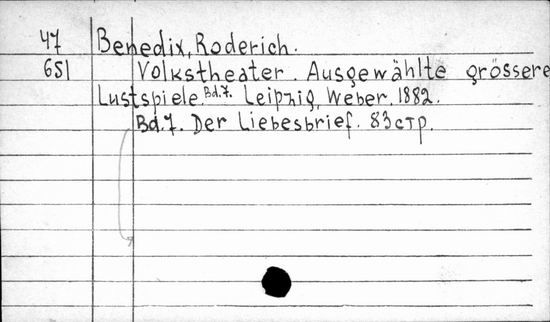 47 Benedix, Roderich.
651 Volkstheater. Ausgewählte grössere
Lustspiele. Bd.7. Leipzig, Weber. 1882.
Bd.7. Der Liebesbrief. 83 стр.